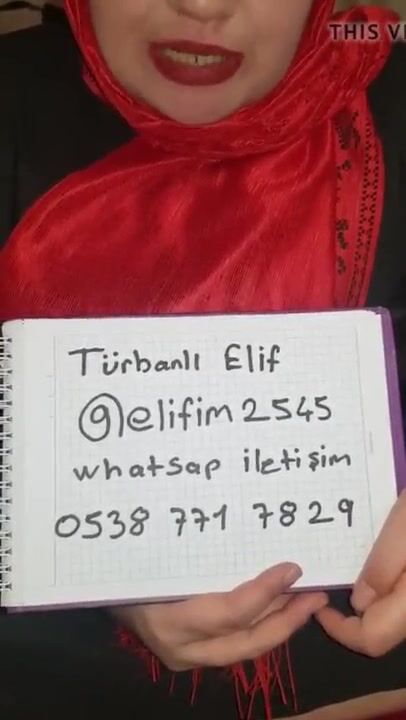 THIS V
Türbanlı Elif
@elifim2545
whatsap iletişim
0538 771 7829